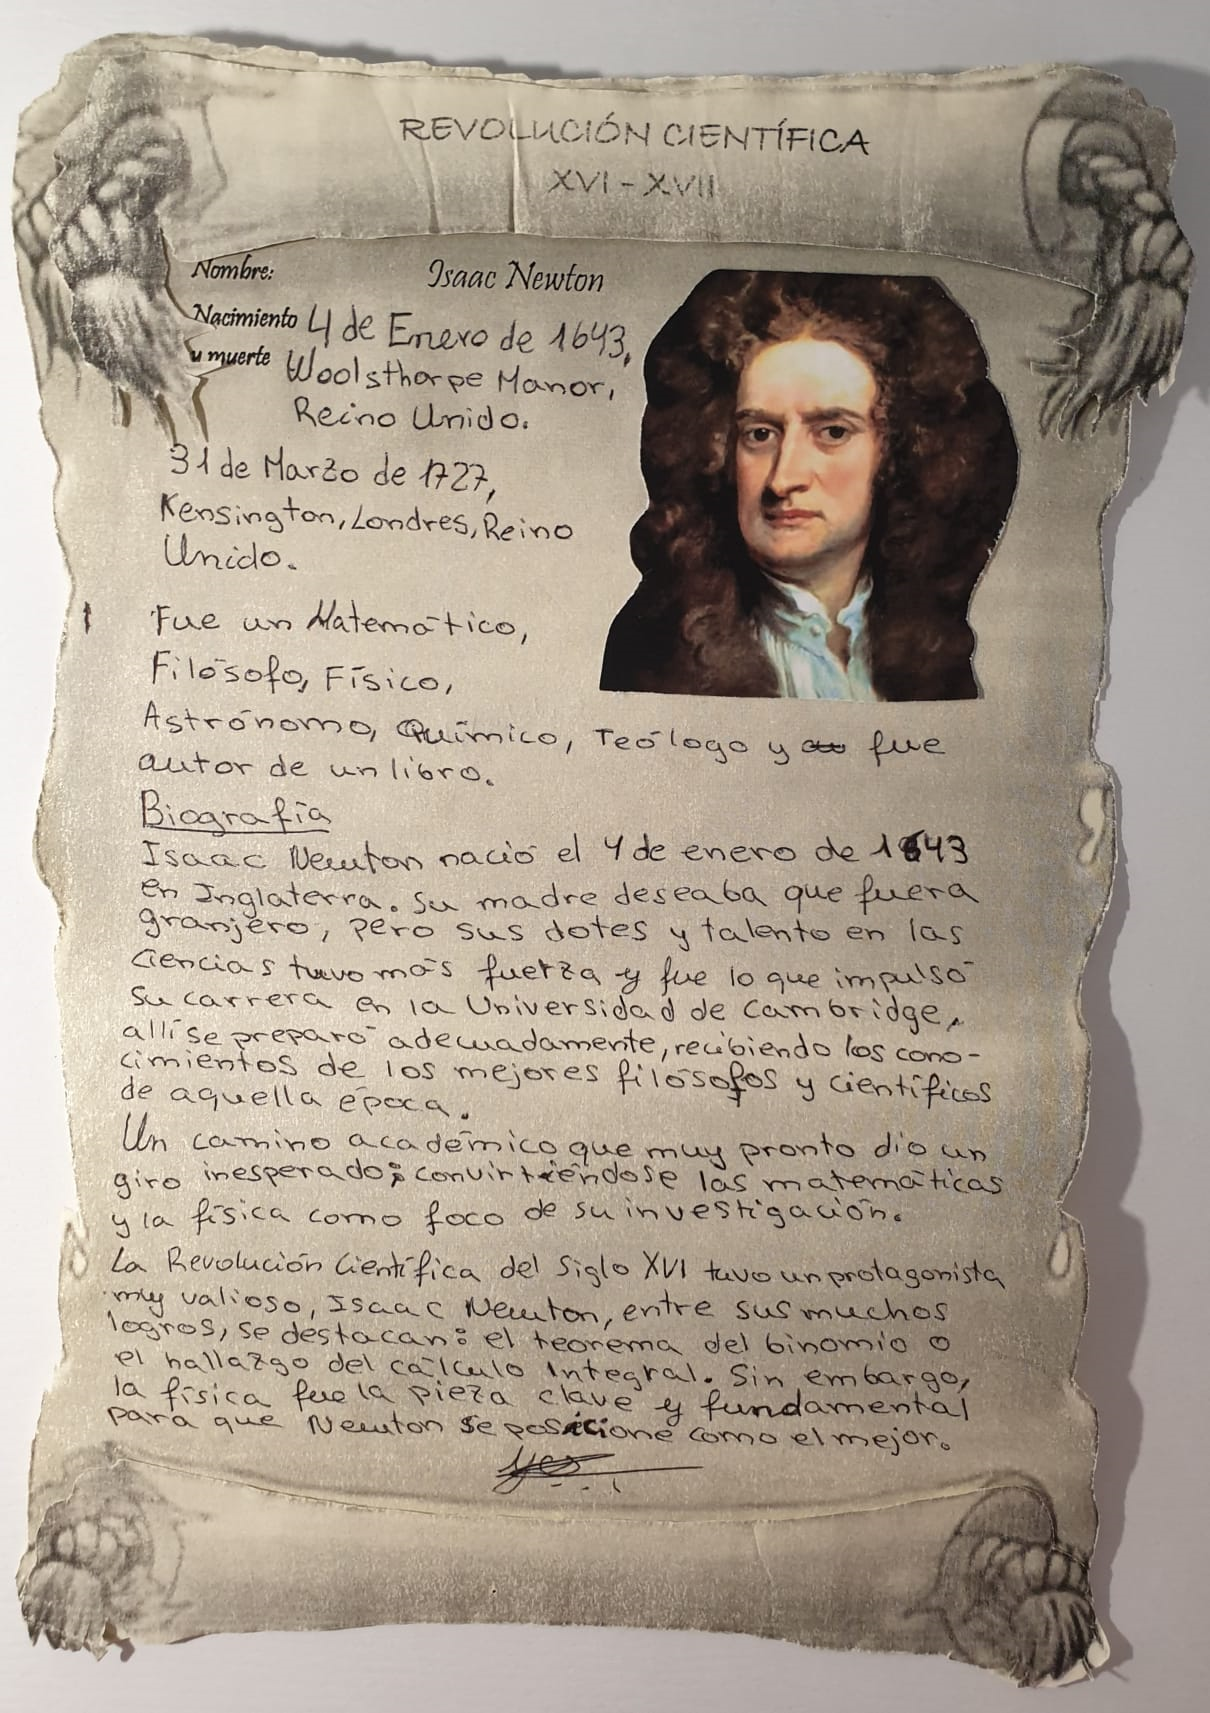 REVOLUCIÓN CIENTÍFICA
XVI - XVII
Nombre: Isaac Newton
Nacimiento 4 de Enero de 1643,
y muerte Woolsthorpe Manor,
Reino Unido.
31 de Marzo de 1727,
Kensington, Londres, Reino
Unido.
Fue un Matemático,
Filósofo, Físico,
Astrónomo, Químico, Teólogo y fue
autor de un libro.
Biografía
Isaac Newton nació el 4 de enero de 1643
en Inglaterra. Su madre deseaba que fuera
granjero, pero sus dotes y talento en las
Ciencias tuvo más fuerza y fue lo que impulsó
su carrera en la Universidad de Cambridge,
allí se preparó adecuadamente, recibiendo los cono-
cimientos de los mejores filósofos y científicos
de aquella época.
Un camino académico que muy pronto dio un
giro inesperado; convirtiéndose las matemáticas
y la física como foco de su investigación.
La Revolución Científica del Siglo XVI tuvo un protagonista
muy valioso, Isaac Newton, entre sus muchos
logros, se destacan: el teorema del binomio o
el hallazgo del cálculo Integral. Sin embargo,
la física fue la pieza clave y fundamental
para que Newton se posicione como el mejor.